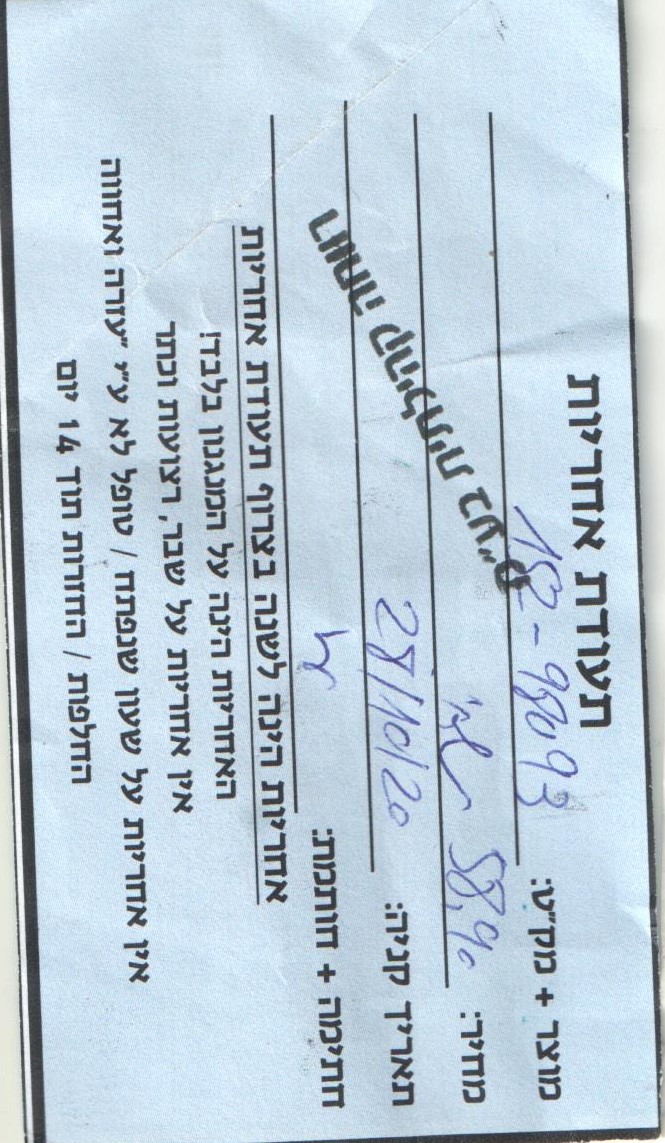 תעודת אחריות
מוצר + מק״ט: 182-98093
מחיר: 58,90
תאריך קניה: 28/10/20
חתימה + חותמת:
רווחה קהילתית בע״מ
אחריות הינה לשנה בצרוף תעודת אחריות
האחריות הינה על המנגנון בלבד!
אין אחריות על שבר, רצועות וכתר
אין אחריות על שעון שנפתח / טופל לא ע״י ״עזרה ואחווה
החלפות / החזרות תוך 14 יום